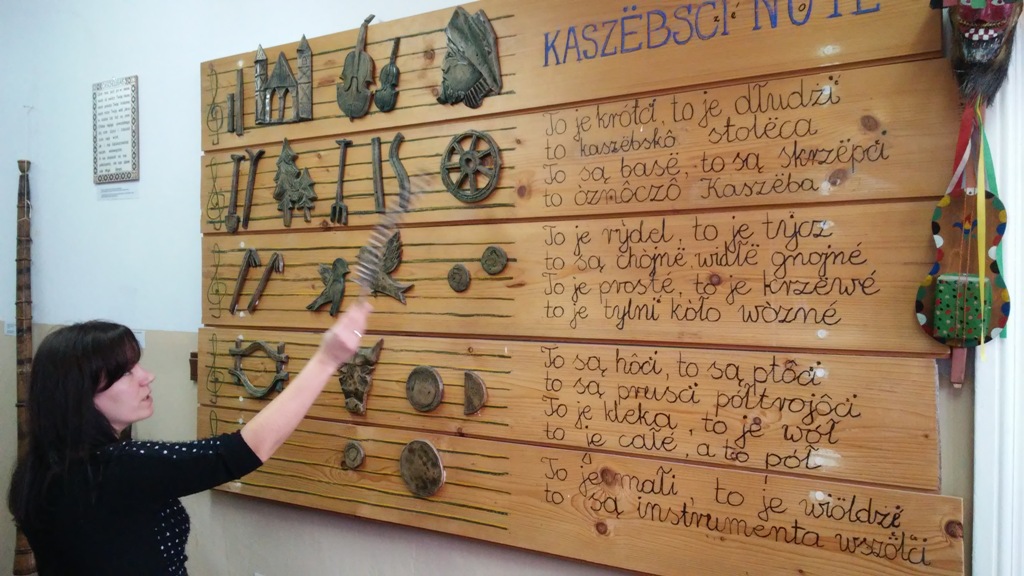 KASZËBSCZÉ NÓTË
To je krótczi, to je dłudżi
to kaszëbskô stolëca
To są basë, to są skrzëpczi
to òznôczô Kaszëba
To je rëdel, to je tëjcz
to są chójné widłë gnojné
To je prosté, to je krzëwé
to je tylni kòło wòzné
To są hôczi, to są ptôczi
to są prusczi półtrojôczi
To je klëka, to je wół
to je całé, a to pół
To je małi, to je wiôldżi
to są instrumenta wszôtczi